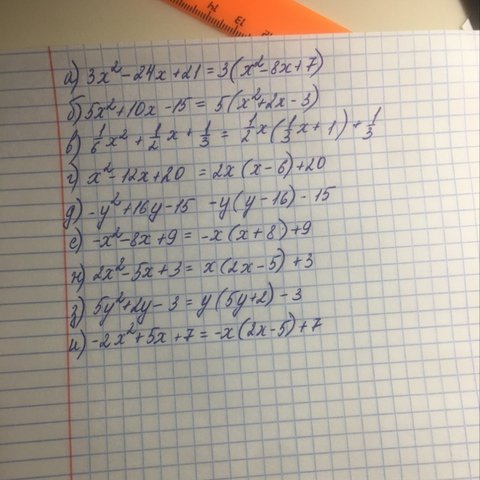 14 13 12
а) 3x² - 24x + 21 = 3(x² - 8x + 7)
б) 5x² + 10x - 15 = 5(x² + 2x - 3)
в) 1/6 x² + 1/2 x + 1/3 = 1/2 x(1/3 x + 1) + 1/3
г) x² - 12x + 20 = 2x(x - 6) + 20
д) -y² + 16y - 15 -y(y - 16) - 15
е) -x² - 8x + 9 = -x(x + 8) + 9
н) 2x² - 5x + 3 = x(2x - 5) + 3
з) 5y² + 2y - 3 = y(5y + 2) - 3
и) -2x² + 5x + 7 = -x(2x - 5) + 7